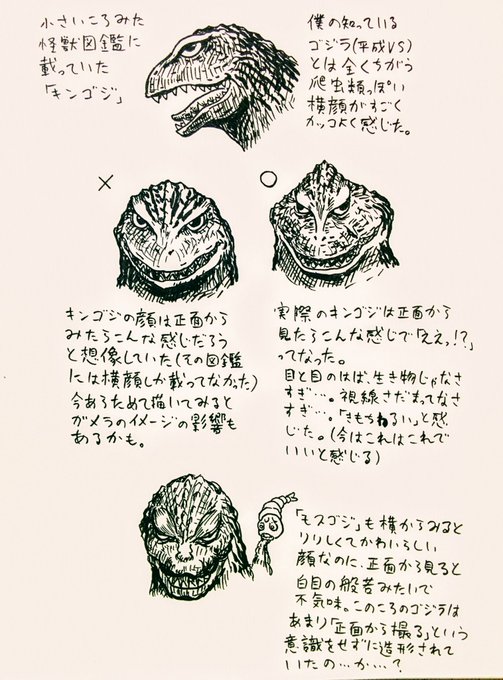 小さいころみた
怪獣図鑑に
載っていた
「キンゴジ」
僕の知っている
ゴジラ(平成VS)
とは全くちがう
爬虫類っぽい
横顔がすごく
カッコよく感じた。
×
○
キンゴジの顔は正面から
みたらこんな感じだろう
と想像していた(その図鑑
には横顔しか載ってなかった)
今あらためて描いてみると
ガメラのイメージの影響も
あるかも。
実際のキンゴジは正面から
見たらこんな感じで「ええっ!?」
ってなった。
目と目のはば、生き物じゃなさ
すぎ…。視線さだまってなさ
すぎ…。「きもちわるい」と感
じた。(今はこれはこれで
いいと感じる)
「モスゴジ」も横からみると
りりしくてかわいらしい
顔なのに、正面から見ると
白目の般若みたいで
不気味。このころのゴジラは
あまり「正面から撮る」という
意識をせずに造形されて
いたの…か…?